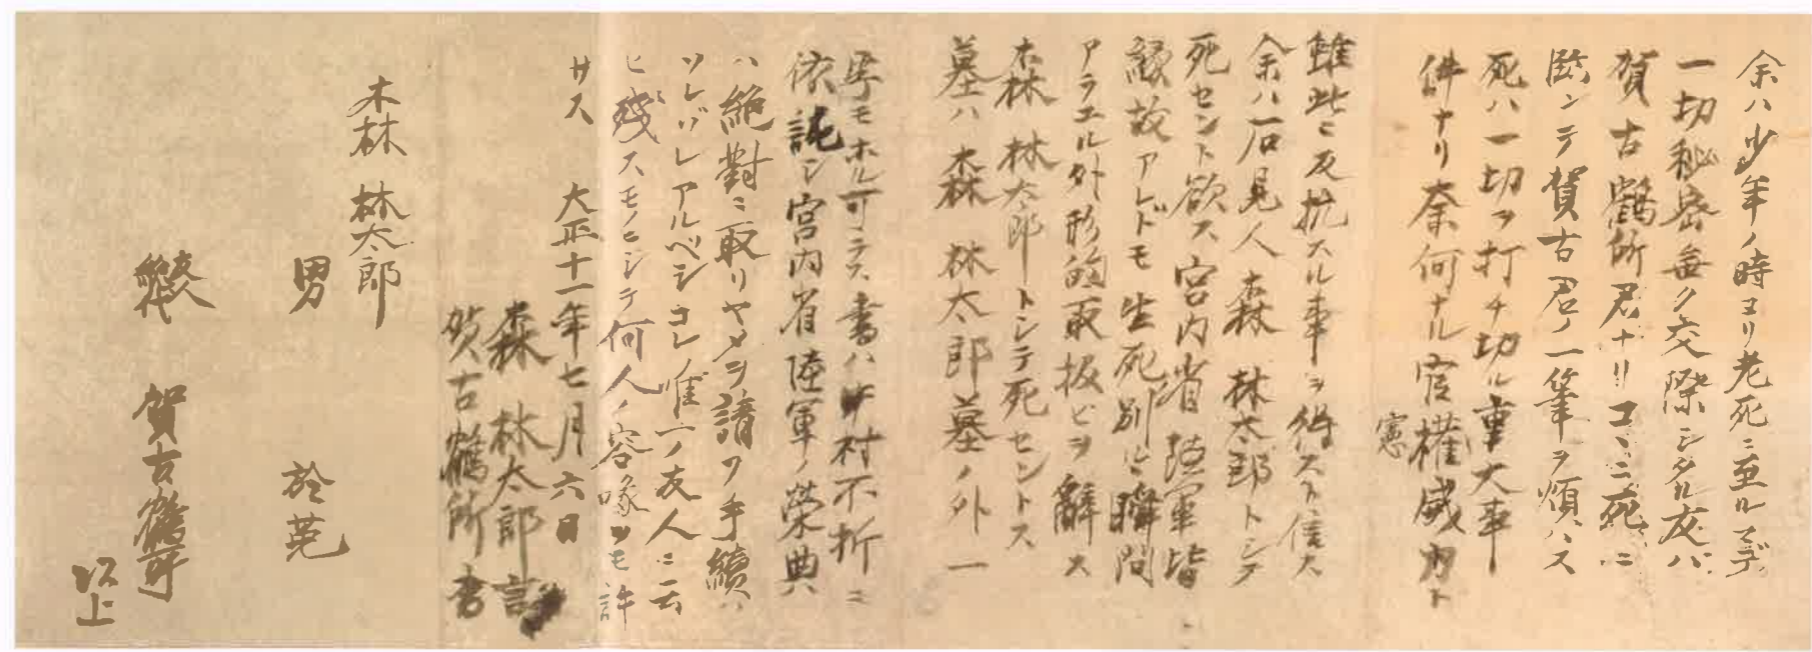 余ハ少年ノ時ヨリ老死ニ至ルマデ
一切秘密無ク交際シタル友ハ
賀古鶴所君ナリコヽニ死ニ
臨ンテ賀古君ノ一筆ヲ煩ハス
死ハ一切ヲ打チ切ル重大事
件ナリ奈何ナル官權威力ト
憲
雖此ニ反抗スル事ヲ得スト信ス
余ハ石見人森林太郎トシテ
死セント欲ス宮内省陸軍皆
縁故アレドモ生死別ルヽ瞬間
アラユル外形的取扱ヒヲ辭ス
森林太郎トシテ死セントス
墓ハ森林太郎墓ノ外一
字モホル可ラス書ハ中村不折ニ
依託シ宮内省陸軍ノ榮典
ハ絶對ニ取リヤメヲ請フ手續ハ
ソレゾレアルベシコレ唯一ノ友人ニ云
ヒ殘スモノニシテ何人ノ容喙ヲモ許
サス 大正十一年七月六日
森林太郎言
賀古鶴所書
森林太郎
男 於菟
賀古鶴所
以上